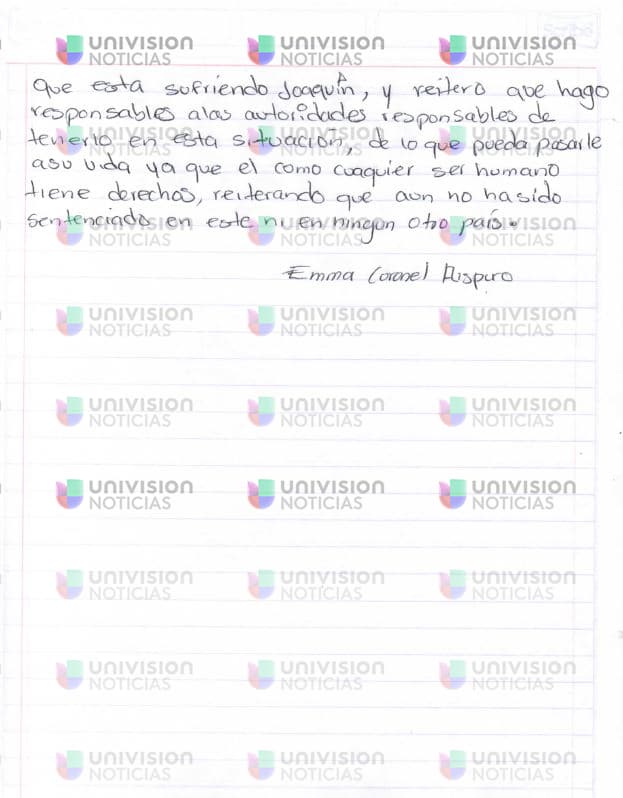 UNIVISION UNIVISION UNIVISION
NOTICIAS NOTICIAS NOTICIAS
que esta sufriendo Joaquín, y reitero que hago
responsables alas autoridades responsables de
tenerlo en esta situación, de lo que pueda pasarle
UNIVISION UNIVISION UNIVISION
NOTICIAS NOTICIAS NOTICIAS
asu vida ya que el como cuaquier ser humano
tiene derechos, reiterando que aun no hasido
sentenciado en este ni en ningun otro país.
UNIVISION UNIVISION UNIVISION
NOTICIAS NOTICIAS NOTICIAS
Emma Coronel Aispuro
UNIVISION UNIVISION UNIVISION
NOTICIAS NOTICIAS NOTICIAS
UNIVISION UNIVISION UNIVISION
NOTICIAS NOTICIAS NOTICIAS
UNIVISION UNIVISION UNIVISION
NOTICIAS NOTICIAS NOTICIAS
UNIVISION UNIVISION UNIVISION
NOTICIAS NOTICIAS NOTICIAS
UNIVISION UNIVISION UNIVISION
NOTICIAS NOTICIAS NOTICIAS
UNIVISION UNIVISION UNIVISION
NOTICIAS NOTICIAS NOTICIAS